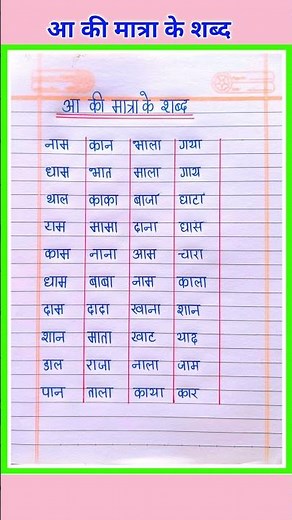 आ की मात्रा के शब्द
आ की मात्रा के शब्द
नाम कान भाला गया
धाम भात माला गाय
थाल काका बाजा घाटा
राम मामा दाना घास
काम नाना आम चारा
धाम बाबा नाम काला
दाम दादा खाना शान
शान माता खाट याद
डाल राजा नाला जाम
पान ताला काया कार